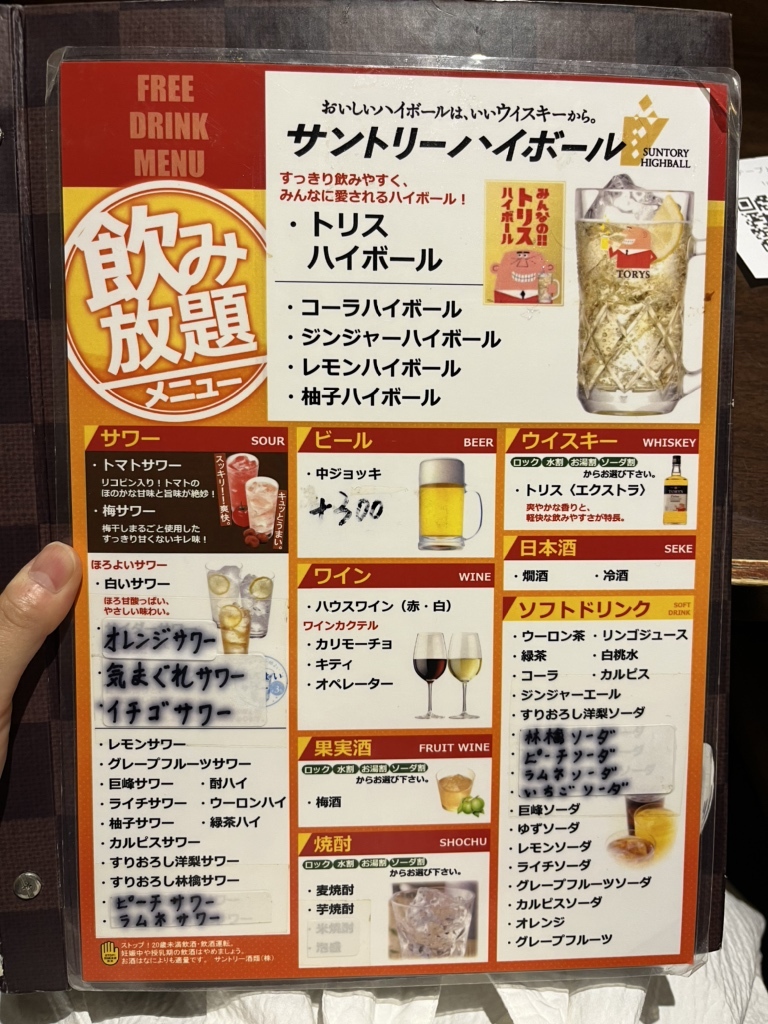 FREE
DRINK
MENU
飲み
放題
メニュー
おいしいハイボールは、いいウイスキーから。
サントリーハイボール
SUNTORY
HIGHBALL
すっきり飲みやすく、
みんなに愛されるハイボール！
・トリス
ハイボール
みんなの!!
トリス
ハイボール
TORYS
・コーラハイボール
・ジンジャーハイボール
・レモンハイボール
・柚子ハイボール
サワー SOUR
・トマトサワー
リコピン入り！トマトの
ほのかな甘味と旨味が絶妙！
・梅サワー
梅干しまるごと使用した
すっきり甘くないキレ味！
スッキリ！爽快。
キュッとうまい。
ほろよいサワー
・白いサワー
ほろ甘酸っぱい、
やさしい味わい。
・オレンジサワー
・気まぐれサワー
・イチゴサワー
・レモンサワー
・グレープフルーツサワー
・巨峰サワー ・酎ハイ
・ライチサワー ・ウーロンハイ
・柚子サワー ・緑茶ハイ
・カルピスサワー
・すりおろし洋梨サワー
・すりおろし林檎サワー
・ピーチサワー
・ラムネサワー
ストップ！20歳未満飲酒・飲酒運転。
妊娠中や授乳期の飲酒はやめましょう。
お酒はなによりも適量です。 サントリー酒類（株）
ビール BEER
・中ジョッキ
+300
ワイン WINE
・ハウスワイン（赤・白）
ワインカクテル
・カリモーチョ
・キティ
・オペレーター
果実酒 FRUIT WINE
ロック 水割 お湯割 ソーダ割
からお選び下さい。
・梅酒
焼酎 SHOCHU
ロック 水割 お湯割 ソーダ割
からお選び下さい。
・麦焼酎
・芋焼酎
・米焼酎
・泡盛
ウイスキー WHISKEY
ロック 水割 お湯割 ソーダ割
からお選び下さい。
・トリス〈エクストラ〉
爽やかな香りと、
軽快な飲みやすさが特長。
日本酒 SEKE
・燗酒 ・冷酒
ソフトドリンク SOFT DRINK
・ウーロン茶 ・リンゴジュース
・緑茶 ・白桃水
・コーラ ・カルピス
・ジンジャーエール
・すりおろし洋梨ソーダ
・林檎ソーダ
・ピーチソーダ
・ラムネソーダ
・いちごソーダ
・巨峰ソーダ
・ゆずソーダ
・レモンソーダ
・ライチソーダ
・グレープフルーツソーダ
・カルピスソーダ
・オレンジ
・グレープフルーツ